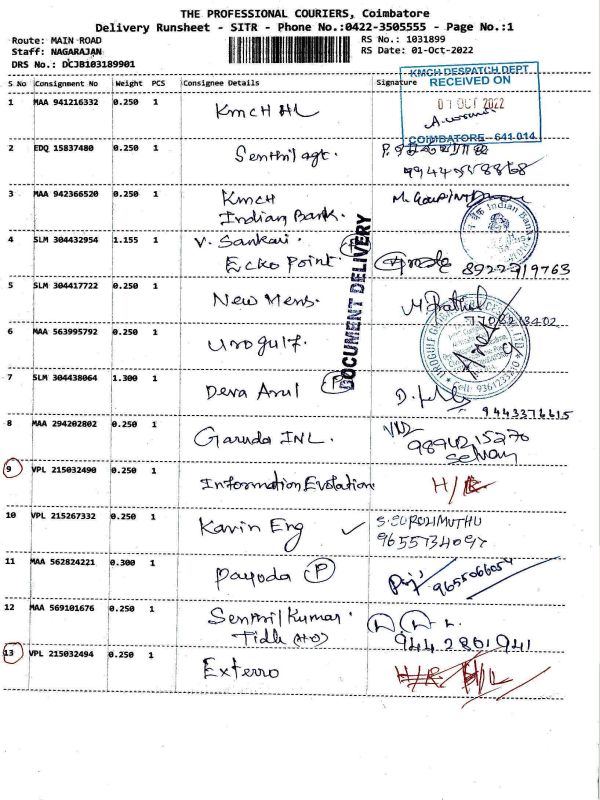 THE PROFESSIONAL COURIERS, Coimbatore
Delivery Runsheet - SITR - Phone No.:0422-3505555 - Page No.:1
Route: MAIN ROAD
RS No.: 1031899
Staff: NAGARAJAN
RS Date: 01-Oct-2022
DRS No.: DCJB103189901
S No Consignment No Weight PCS Consignee Details Signature
KMCH DESPATCH DEPT
RECEIVED ON
01 OCT 2022
COIMBATORE - 641 014
1 MAA 941216332 0.250 1 KMCH HL
2 EDQ 15837480 0.250 1 Senthil agt.
3 MAA 942366520 0.250 1 KMCH
Indian Bank.
Indian Bank
4 SLM 304432954 1.155 1 V. Sankari. P
Ecko Point. 8922719763
DOCUMENT DELIVERY
5 SLM 304417722 0.250 1 New Mens.
7708213402
6 MAA 563995792 0.250 1 Urogulf.
7 SLM 304438064 1.300 1 Deva Arul P
9443376615
8 MAA 294202802 0.250 1 Garuda INL. 9894215270
Selvan
9 VPL 215032490 0.250 1 Information Evolution
10 VPL 215267332 0.250 1 Kavin Eng ✓
9655734097
11 MAA 562824221 0.300 1 Payoda P 9655066054
12 MAA 569101676 0.250 1 Senthil Kumar.
Tidh (HO) 9442801941
13 VPL 215032494 0.250 1 Exterro